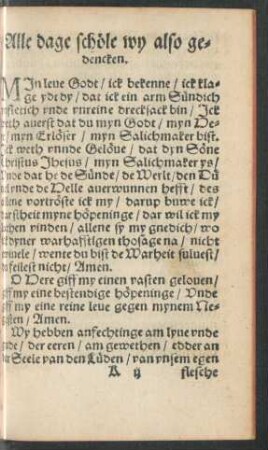 Alle dage schöle wy also ge-
dencken.
MIn leue Godt / ick bekenne / ick kla-
ge ydt dy / dat ick ein arm Sündich
vnde vnreine drecksack bin / Ick
weth auerst dat du myn Godt / myn He-
/ myn Erlöser / myn Salichmaker bist.
Ick weth vnde Gelöue / dat dyn Söne
Christus Jhesus / myn Salichmaker ys /
Vnde dat he de Sünde / de Werlt / den Dü
vnde de Helle auerwunnen hefft / des
alleine vortröste ick my / darup buwe ick /
dar steit myne höpeninge / dar wil ick my
laten vinden / allene sy my gnedich / wo
dyner warhafftigen thosage na / nicht
twiuele / wente du bist de Warheit süluest /
feilest nicht / Amen.
O Here giff my einen vasten gelouen /
giff my eine bestendige höpeninge / Vnde
giff my eine reine leue gegen mynem Ne-
gesten / Amen.
Wy hebben anfechtinge am lyue vnde
gude / der eeren / am gewethen / edder an
der Seele van den Lüden / van vnsem egen
A ij flesche